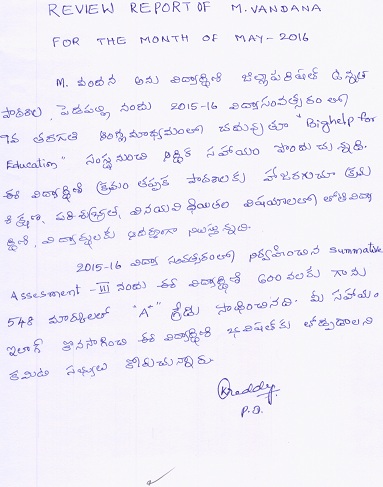 REVIEW REPORT OF M. VANDANA
FOR THE MONTH OF MAY - 2016
M. వందన అను విద్యార్థిని జిల్లా పరిషత్ ఉన్నత
పాఠశాల, పెడపల్లి నందు 2015-16 విద్యాసంవత్సరంలో
9వ తరగతి ఆంగ్లమాధ్యమంలో చదువుతూ "Bighelp for
Education" సంస్థ నుంచి ఆర్థిక సహాయం పొందుచున్నది.
ఈ విద్యార్థిని క్రమం తప్పక పాఠశాలకు హాజరగుచూ క్రమ
శిక్షణ, పరిశుభ్రత, వినయవిధేయతల విషయాలలో తోటి విద్యా
ర్థిని, విద్యార్థులకు ఆదర్శంగా నిలుస్తున్నది.
2015-16 విద్యా సంవత్సరంలో నిర్వహించిన Summative
Assesment - III నందు ఈ విద్యార్థిని 600 లకు గాను
548 మార్కులలో "A+" గ్రేడు సాధించినది. మీ సహాయం
ఇలాగే కొనసాగించి ఈ విద్యార్థిని భవిషత్ కు తోడ్పడాలని
కమిటి సభ్యులు కోరుచున్నారు.
KReddy
P.D.